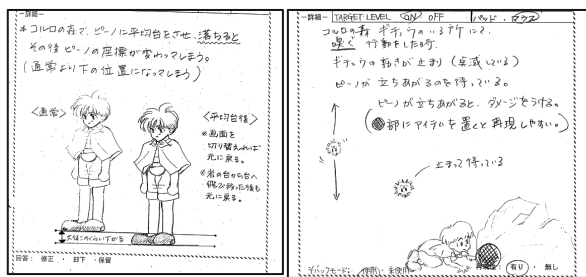 －詳細－
＊コルロの森で、ピーノに平均台をさせ、落ちると
その後ピーノの座標が変わってしまう。
（通常より下の位置になってしまう）
〈通常〉
〈平均台後〉
＊画面を
切り替えれば
元に戻る。
＊岩の台から台へ
飛び移った後も
元に戻る。
大体このくらい下がる
回答： 修正 ・ 却下 ・ 保留
－詳細－ TARGET LEVEL ON OFF パッド・マウス
コルロの森 ギチュウのいる所にて
嗅ぐ 行動をした時、
ギチュウの動きが止まり（点滅している）
ピーノが 立ちあがるのを待っている。
ピーノが立ちあがると、ダメージをうける。
（ 部にアイテムを置くと再現しやすい。）
止まって待っている
デバックモード： 使用・未使用
有り ・ 無し